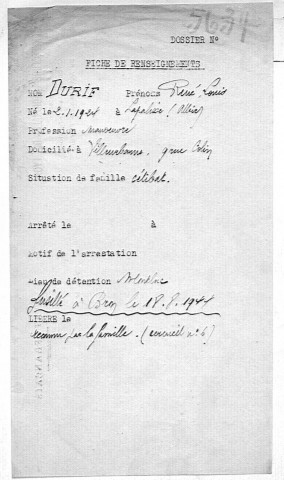 5634
DOSSIER N°
FICHE DE RENSEIGNEMENTS
NOM DURIF Prénoms René, Louis
Né le 2.1.1924 à Lapalisse (Allier)
Profession Manoeuvre
Domicilié à Villeurbanne, 9 rue Colin
Situation de famille célibat.
Arrêté le à
Motif de l'arrestation
Lieu de détention Montluc
fusillé à Bron le 18.8.1944
LIBERE le
reconnu par la famille. (cercueil n° 6)